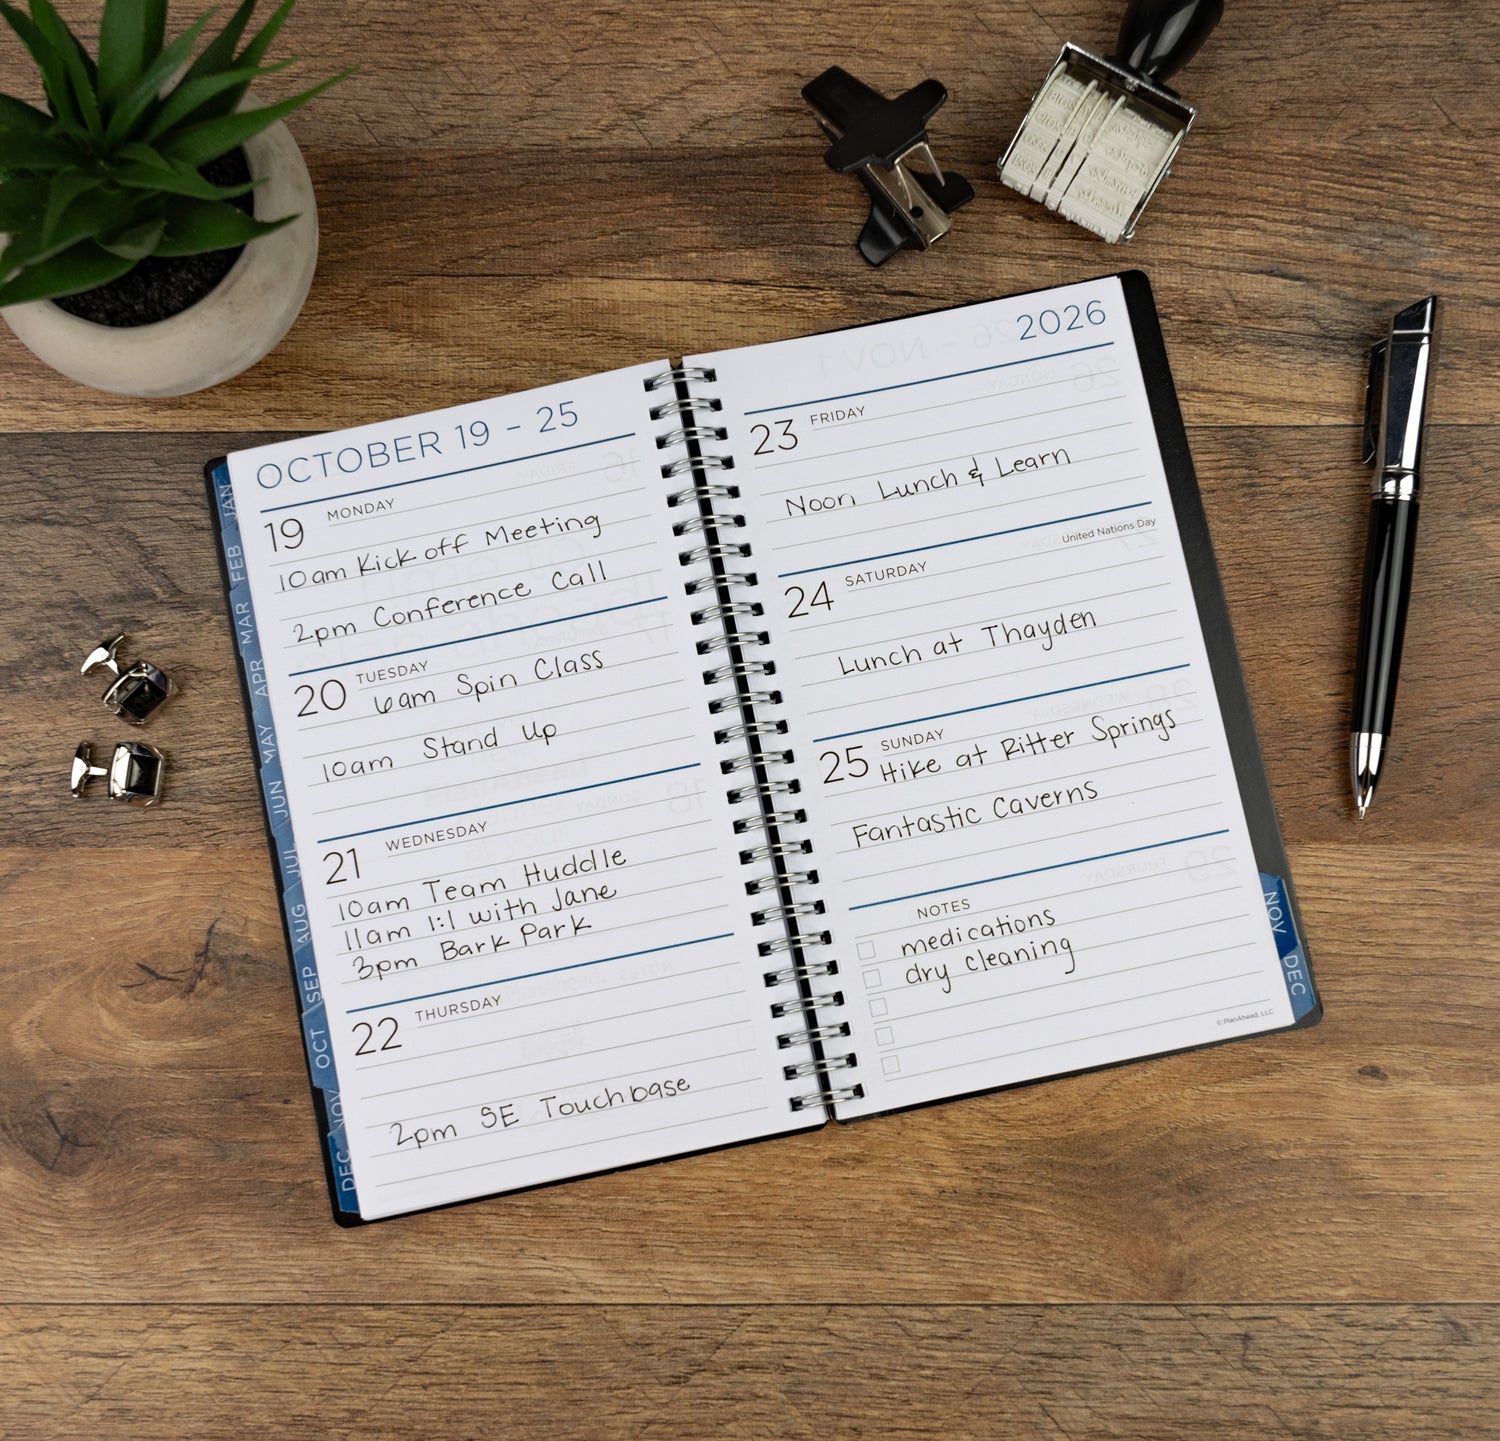 OCTOBER 19 - 25
19 MONDAY
10am Kick off Meeting
2pm Conference Call
20 TUESDAY
6am Spin Class
10am Stand Up
21 WEDNESDAY
10am Team Huddle
11am 1:1 with Jane
3pm Bark Park
22 THURSDAY
2pm SE Touchbase
2026
23 FRIDAY
Noon Lunch & Learn
United Nations Day
24 SATURDAY
Lunch at Thayden
25 SUNDAY
Hike at Ritter Springs
Fantastic Caverns
NOTES
medications
dry cleaning
© PlanAhead, LLC
JAN
FEB
MAR
APR
MAY
JUN
JUL
AUG
SEP
OCT
NOV
DEC
NOV
DEC